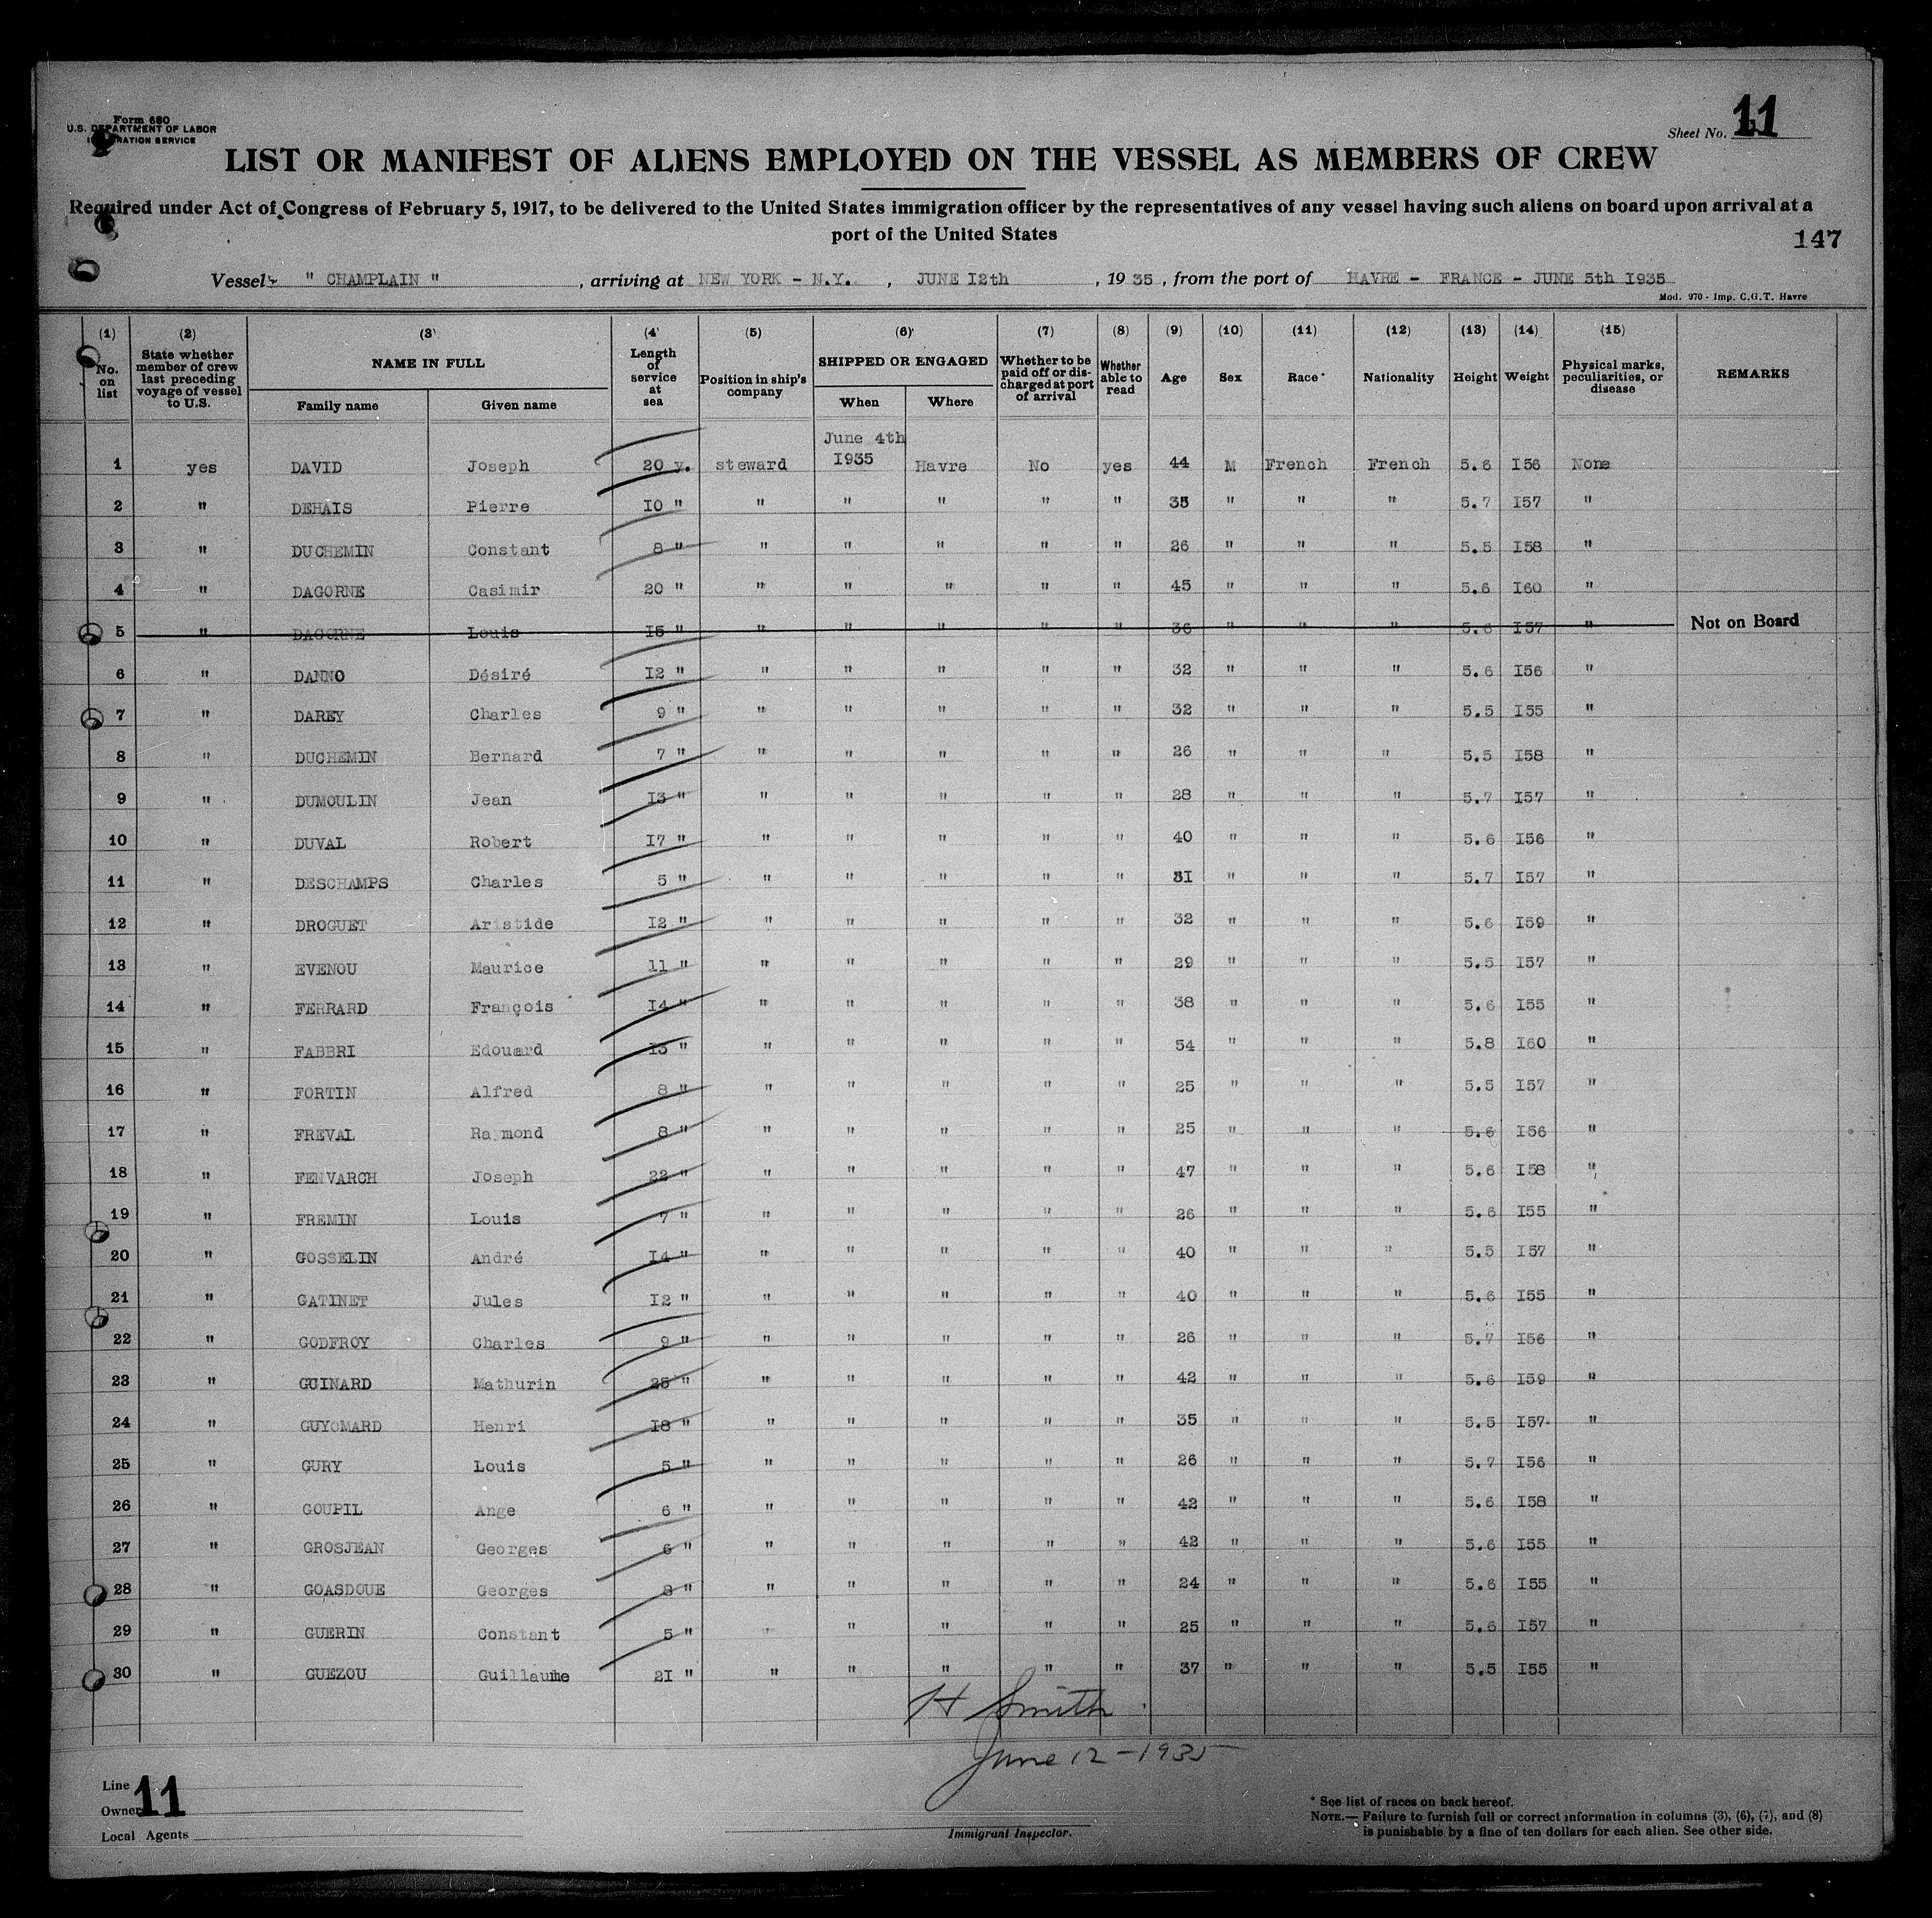 Form 680
U.S. DEPARTMENT OF LABOR
IMMIGRATION SERVICE
Sheet No. 11
LIST OR MANIFEST OF ALIENS EMPLOYED ON THE VESSEL AS MEMBERS OF CREW
Required under Act of Congress of February 5, 1917, to be delivered to the United States immigration officer by the representatives of any vessel having such aliens on board upon arrival at a
port of the United States
147
Vessel " CHAMPLAIN " , arriving at NEW YORK - N.Y. , JUNE I2th , 19 35 , from the port of HAVRE - FRANCE - JUNE 5th I935
Mod. 970 - Imp. C.G.T. Havre
(1) (2) (3) (4) (5) (6) (7) (8) (9) (10) (11) (12) (13) (14) (15)
No. on list | State whether member of crew last preceding voyage of vessel to U.S. | NAME IN FULL | Family name | Given name | Length of service at sea | Position in ship's company | SHIPPED OR ENGAGED | When | Where | Whether to be paid off or discharged at port of arrival | Whether able to read | Age | Sex | Race * | Nationality | Height | Weight | Physical marks, peculiarities, or disease | REMARKS
1 yes DAVID Joseph 20 y. steward June 4th I935 Havre No yes 44 M French French 5.6 I56 None
2 " DEHAIS Pierre I0 " " " " " " 35 " " " 5.7 I57 "
3 " DUCHEMIN Constant 8 " " " " " " 26 " " " 5.5 I58 "
4 " DAGORNE Casimir 20 " " " " " " 45 " " " 5.6 I60 "
5 " DAGORNE Louis I5 " " " " " " 36 " " " 5.6 I57 " Not on Board
6 " DANNO Désiré I2 " " " " " " 32 " " " 5.6 I56 "
7 " DAREY Charles 9 " " " " " " 32 " " " 5.5 I55 "
8 " DUCHEMIN Bernard 7 " " " " " " 26 " " " 5.5 I58 "
9 " DUMOULIN Jean I3 " " " " " " 28 " " " 5.7 I57 "
10 " DUVAL Robert I7 " " " " " " 40 " " " 5.6 I56 "
11 " DESCHAMPS Charles 5 " " " " " " 31 " " " 5.7 I57 "
12 " DROGUET Aristide I2 " " " " " " 32 " " " 5.6 I59 "
13 " EVENOU Maurice 11 " " " " " " 29 " " " 5.5 I57 "
14 " FERRARD François I4 " " " " " " 38 " " " 5.6 I55 "
15 " FABBRI Edouard I3 " " " " " " 54 " " " 5.8 I60 "
16 " FORTIN Alfred 8 " " " " " " 25 " " " 5.5 I57 "
17 " FREVAL Raymond 8 " " " " " " 25 " " " 5.6 I56 "
18 " FENVARCH Joseph 22 " " " " " " 47 " " " 5.6 I58 "
19 " FREMIN Louis 7 " " " " " " 26 " " " 5.6 I55 "
20 " GOSSELIN André I4 " " " " " " 40 " " " 5.5 I57 "
21 " GATINET Jules I2 " " " " " " 40 " " " 5.6 I55 "
22 " GODFROY Charles 9 " " " " " " 26 " " " 5.7 I56 "
23 " GUINARD Mathurin 25 " " " " " " 42 " " " 5.6 I59 "
24 " GUYOMARD Henri I8 " " " " " " 35 " " " 5.5 I57 "
25 " GURY Louis 5 " " " " " " 26 " " " 5.7 I56 "
26 " GOUPIL Ange 6 " " " " " " 42 " " " 5.6 I58 "
27 " GROSJEAN Georges 6 " " " " " " 42 " " " 5.6 I55 "
28 " GOASDOUE Georges 8 " " " " " " 24 " " " 5.6 I55 "
29 " GUERIN Constant 5 " " " " " " 25 " " " 5.6 I57 "
30 " GUEZOU Guillaume 2I " " " " " " 37 " " " 5.5 I55 "
H Smith
June 12 - 1935
Line
Owner 11
Local Agents
Immigrant Inspector.
* See list of races on back hereof.
NOTE.— Failure to furnish full or correct information in columns (3), (6), (7), and (8)
is punishable by a fine of ten dollars for each alien. See other side.